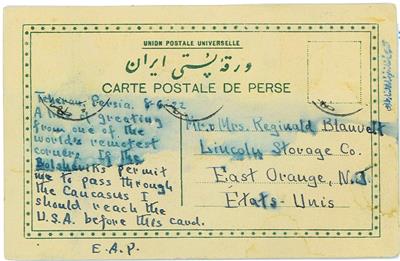 UNION POSTALE UNIVERSELLE
ورقهٔ پستی ایران
CARTE POSTALE DE PERSE
Teheran, Persia. 8-6-22
A note of greeting
from one of the
world's remotest
corners. If the
Bolsheviks permit
me to pass through
the Caucasus I
should reach the
U.S.A. before this card.
E.A.P.
Mr. & Mrs. Reginald Blauvelt
Lincoln Storage Co.
East Orange, N.J.
États-Unis